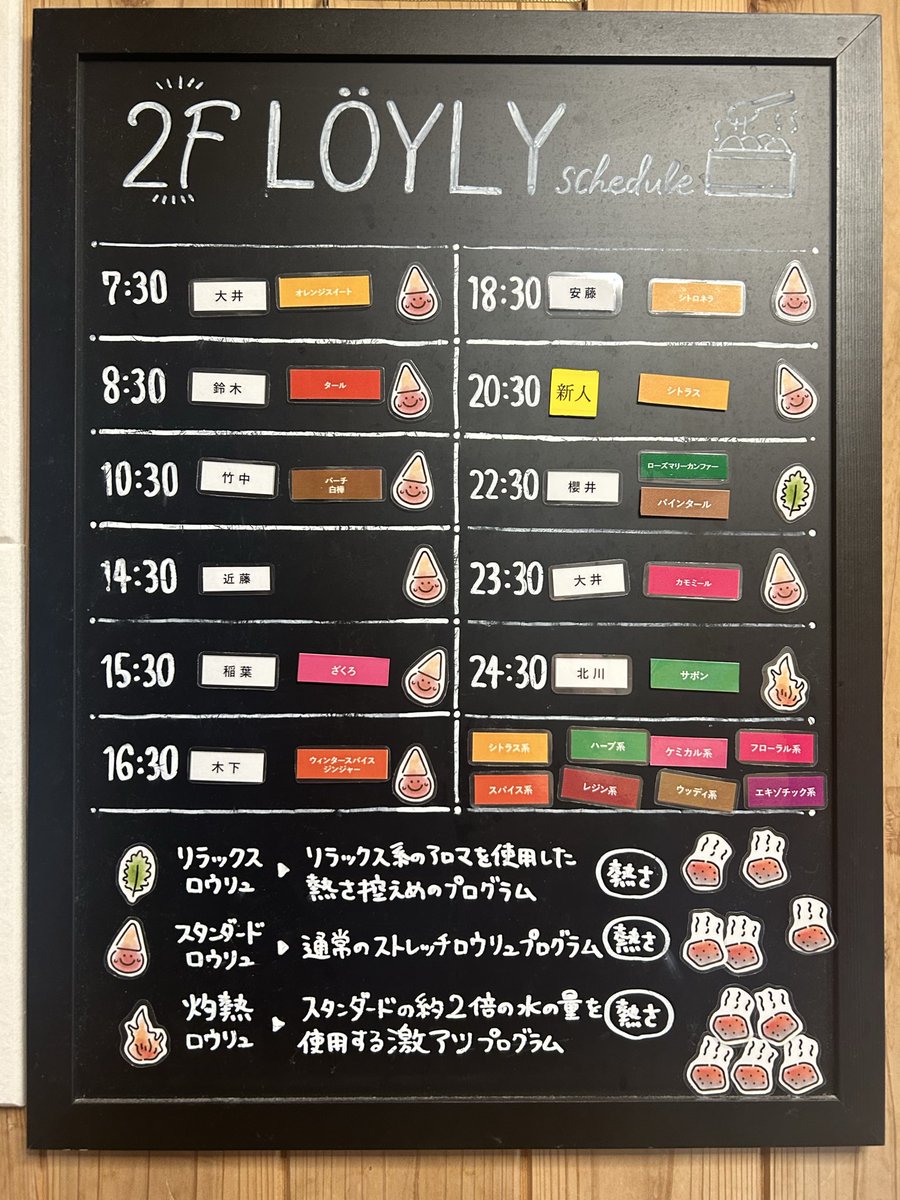 2F LÖYLY schedule
7:30 大井 オレンジスイート
8:30 鈴木 タール
10:30 竹中 バーチ
白樺
14:30 近藤
15:30 稲葉 ざくろ
16:30 木下 ウィンタースパイス
ジンジャー
18:30 安藤 シトロネラ
20:30 新人 シトラス
22:30 櫻井 ローズマリーカンファー
パインタール
23:30 大井 カモミール
24:30 北川 サボン
シトラス系 ハーブ系 ケミカル系 フローラル系
スパイス系 レジン系 ウッディ系 エキゾチック系
リラックス
ロウリュ
リラックス系のアロマを使用した
熱さ控えめのプログラム
熱さ
スタンダード
ロウリュ
通常のストレッチロウリュプログラム
熱さ
灼熱
ロウリュ
スタンダードの約2倍の水の量を
使用する激アツプログラム
熱さ